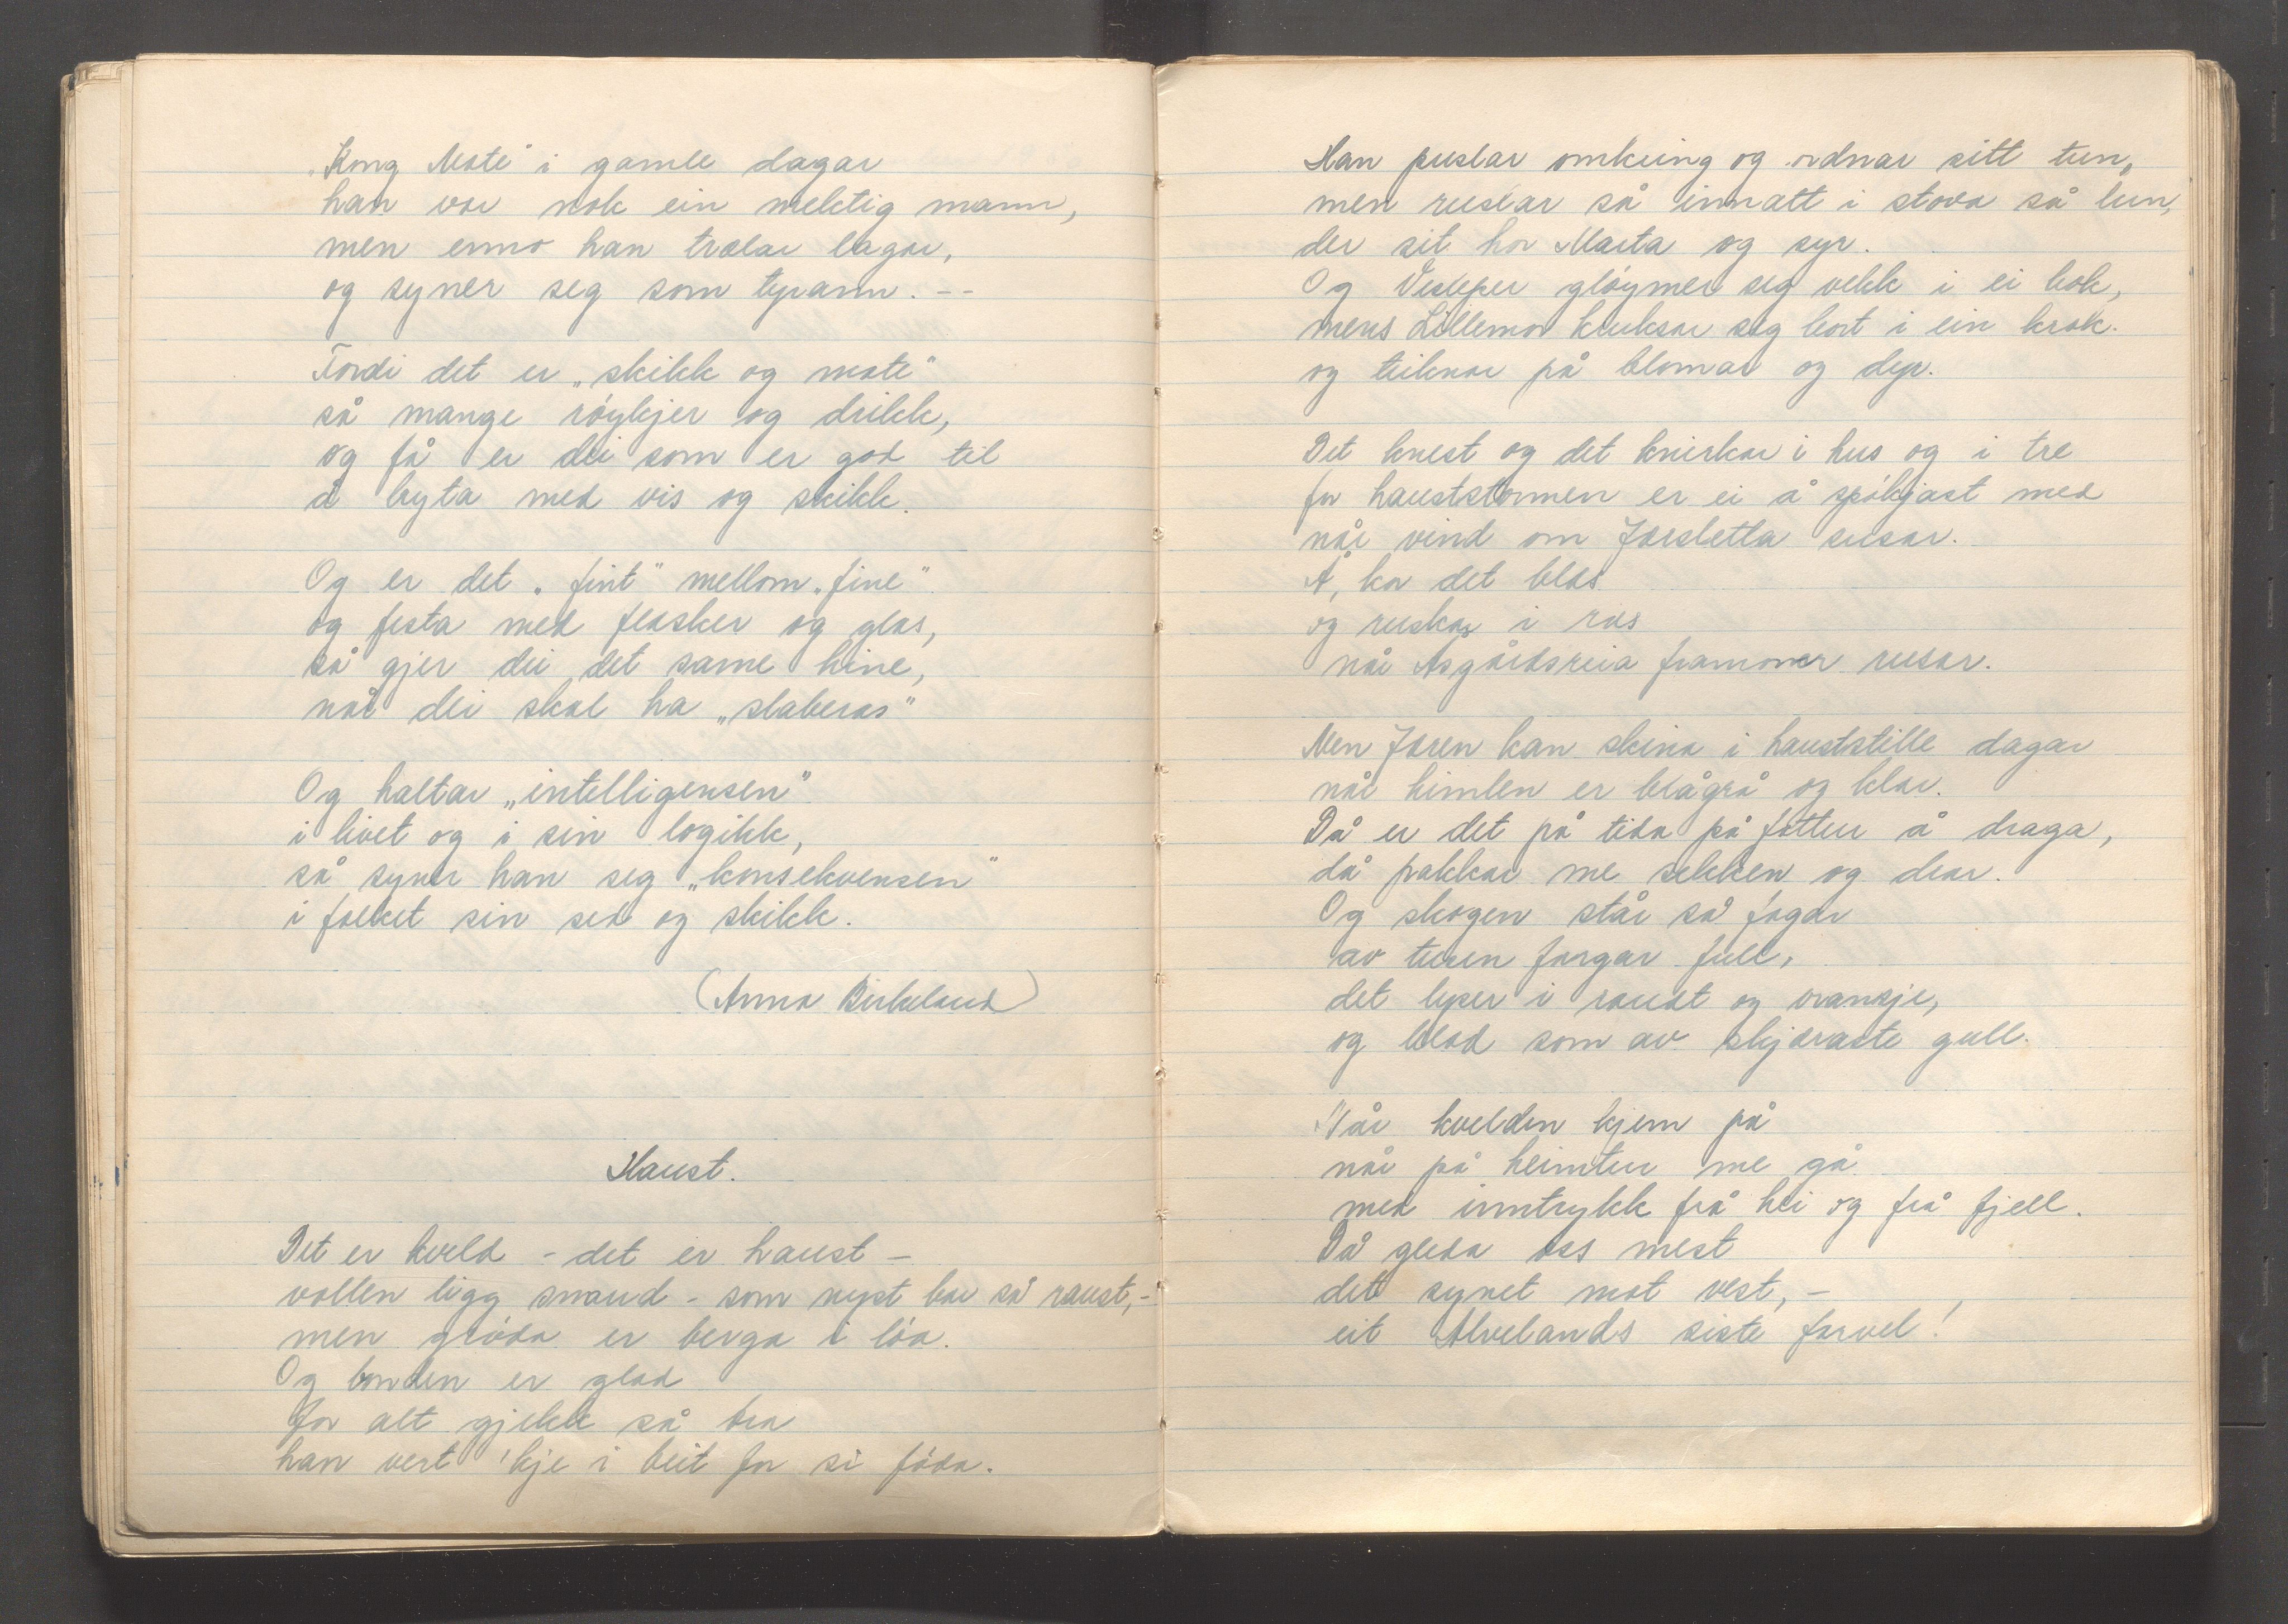 „Kong Mote" i gamle dagar
han var nok ein mektig mann,
men enno han trælar lagar,
og syner seg som tyrann. --
Fordi det er „skikk og mote"
så mange røykjer og drikk,
og få er dei som er god til
å bryta med vis og skikk.
Og er det „fint" mellom „fine"
og festa med flasker og glas,
så gjer dei det same hine,
når dei skal ha „slaberas"
Og haltar „intelligensen"
i livet og i sin logikk,
så syner han seg „konsekvensen"
i folket sin sed og skikk.
(Anna Birkeland)
Haust.
Det er kveld - det er haust -
vollen ligg snaud - som nyst bar så raust, -
men gróda er berga i lóa.
Og bonden er glad
for alt gjekk så bra
han vert 'kje i beit for si fóda.
Han puslar omkring og ordnar sitt tun,
men ruslar så innatt i stova så lun,
der sit hor Marta og syr.
Og Vesleper gløymer seg vekk i ei bok,
mens Lillemor kruksar seg bort i ein krok.
og teiknar på blomar og dyr.
Det knest og det knirkar i hus og i tre
for hauststormen er ei å spókjast med
når vind om Jærsletta susar.
Å, kor det blæs
og ruskar i ras
når Asgårdsreia framover rusar.
Men Jæren kan skina i hauststille dagar
når himlen er blågrå og klar.
Då er det på tida på fottur å draga,
då pakkar me sekken og drar.
Og skogen står så fager
av tusen fargar full,
det lyser i raudt og oransje,
og blad som av skjæraste gull.
Når kvelden kjem på
når på heimtur me gå
med inntrykk frå hei og frå fjell.
Då gleda oss mest
det synet mot vest, -
eit Alvelands siste farvel!